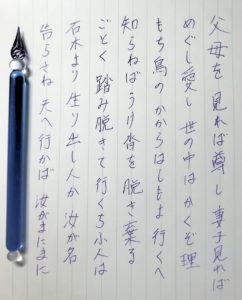 父母を見れば尊し 妻子見れば
めぐし愛し 世の中は かくぞ理
もち鳥の かからはしもよ 行くへ
知らねば うけ沓を 脱き棄る
ごとく 踏み脱きて 行くちふ人は
石木より 生り出し人か 汝が名
告らさね 天へ行かば 汝がまにまに